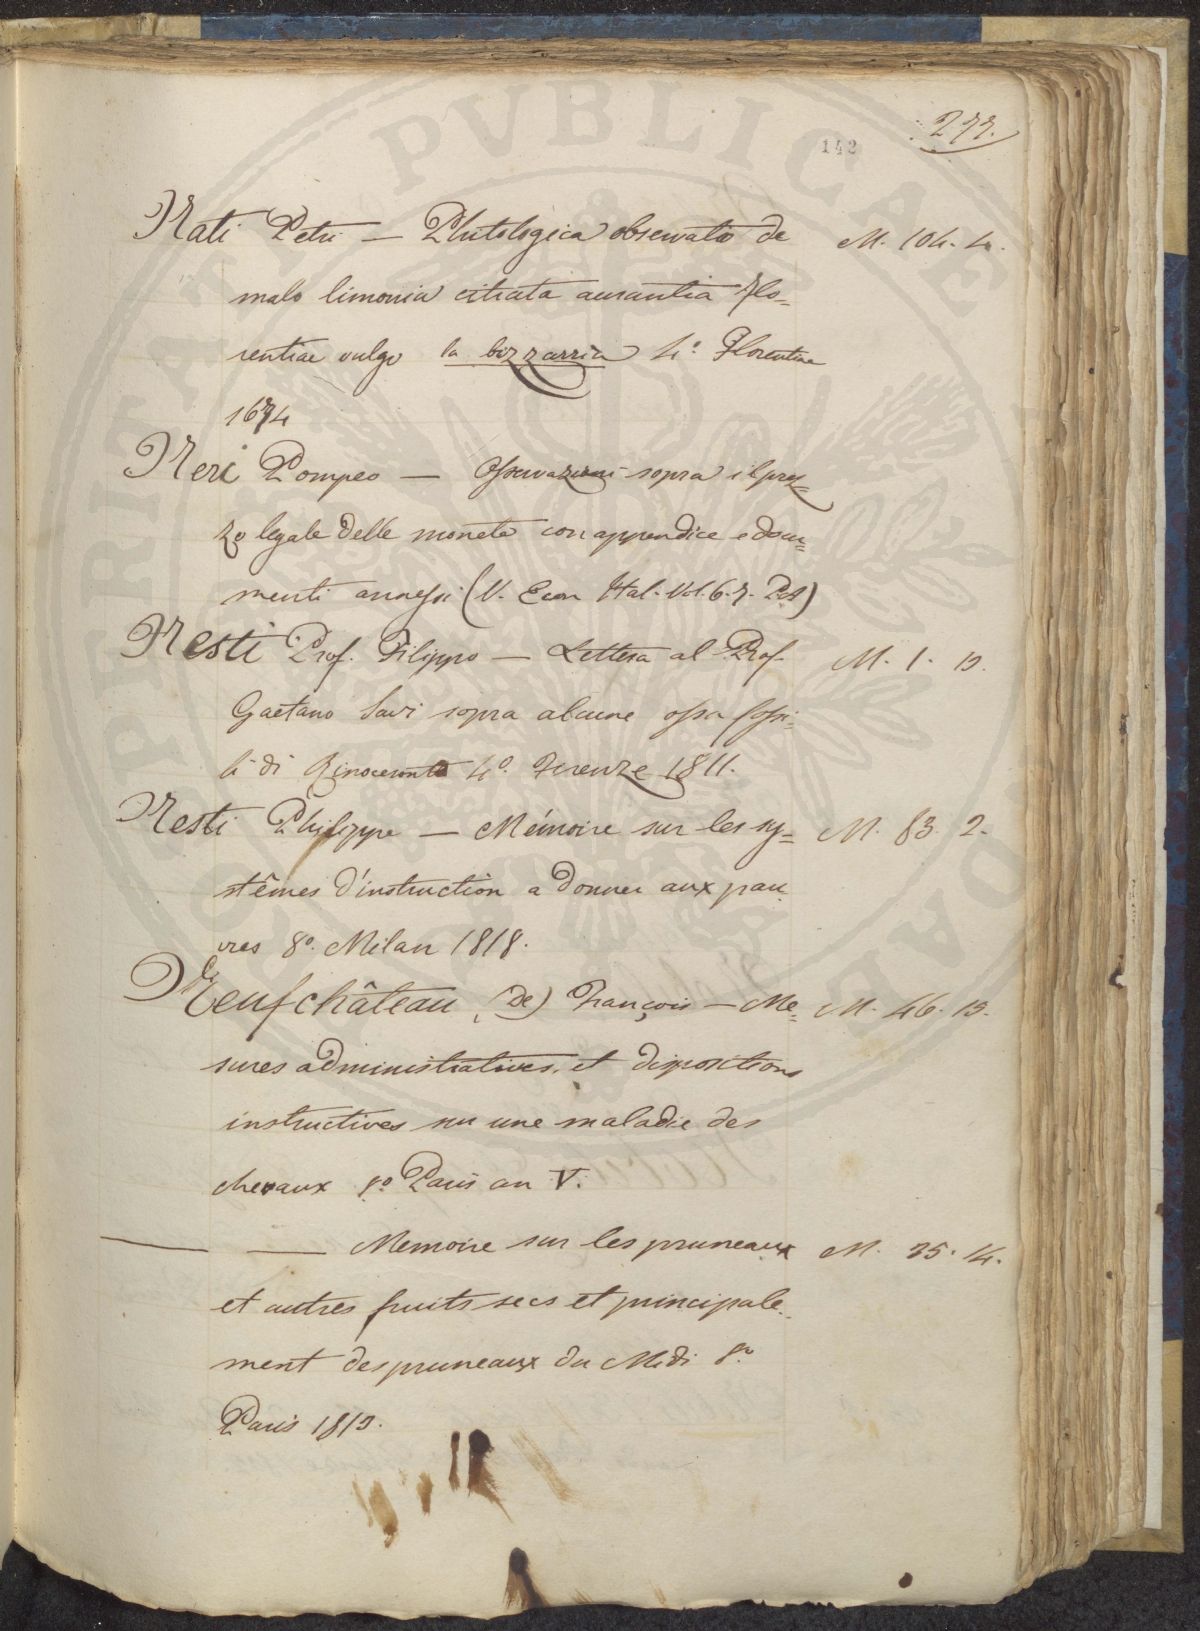 277.
142
Nati Petri — Phitologica observatio de M. 104. 4.
malo limonia citrata aurantia Flo=
rentiae vulgo la bizzarria 4.º Florentiae
1674
Neri Pompeo — Osservazioni sopra il prez=
zo legale delle monete con appendice e docu=
menti annessi (V. Econ Ital. Vol. 6. 7. P.A)
Nesti Prof. Filippo — Lettera al Prof. M. 1. 19.
Gaetano Savi sopra alcune ossa fossi=
li di Rinoceronte 4.º Firenze 1811.
Nesti Philippe — Mémoire sur les sy= M. 83. 2.
stêmes d'instruction a donner aux pau
vres 8.º Milan 1818.
Neufchâteau (de) François — Me= M. 46. 19.
sures administratives et dispositions
instructives sur une maladie des
chevaux 8.º Paris an V.
— — Memoire sur les pruneaux M. 35. 14.
et autres fruits secs et principale
ment des pruneaux du Midi 8.º
Paris 1819.